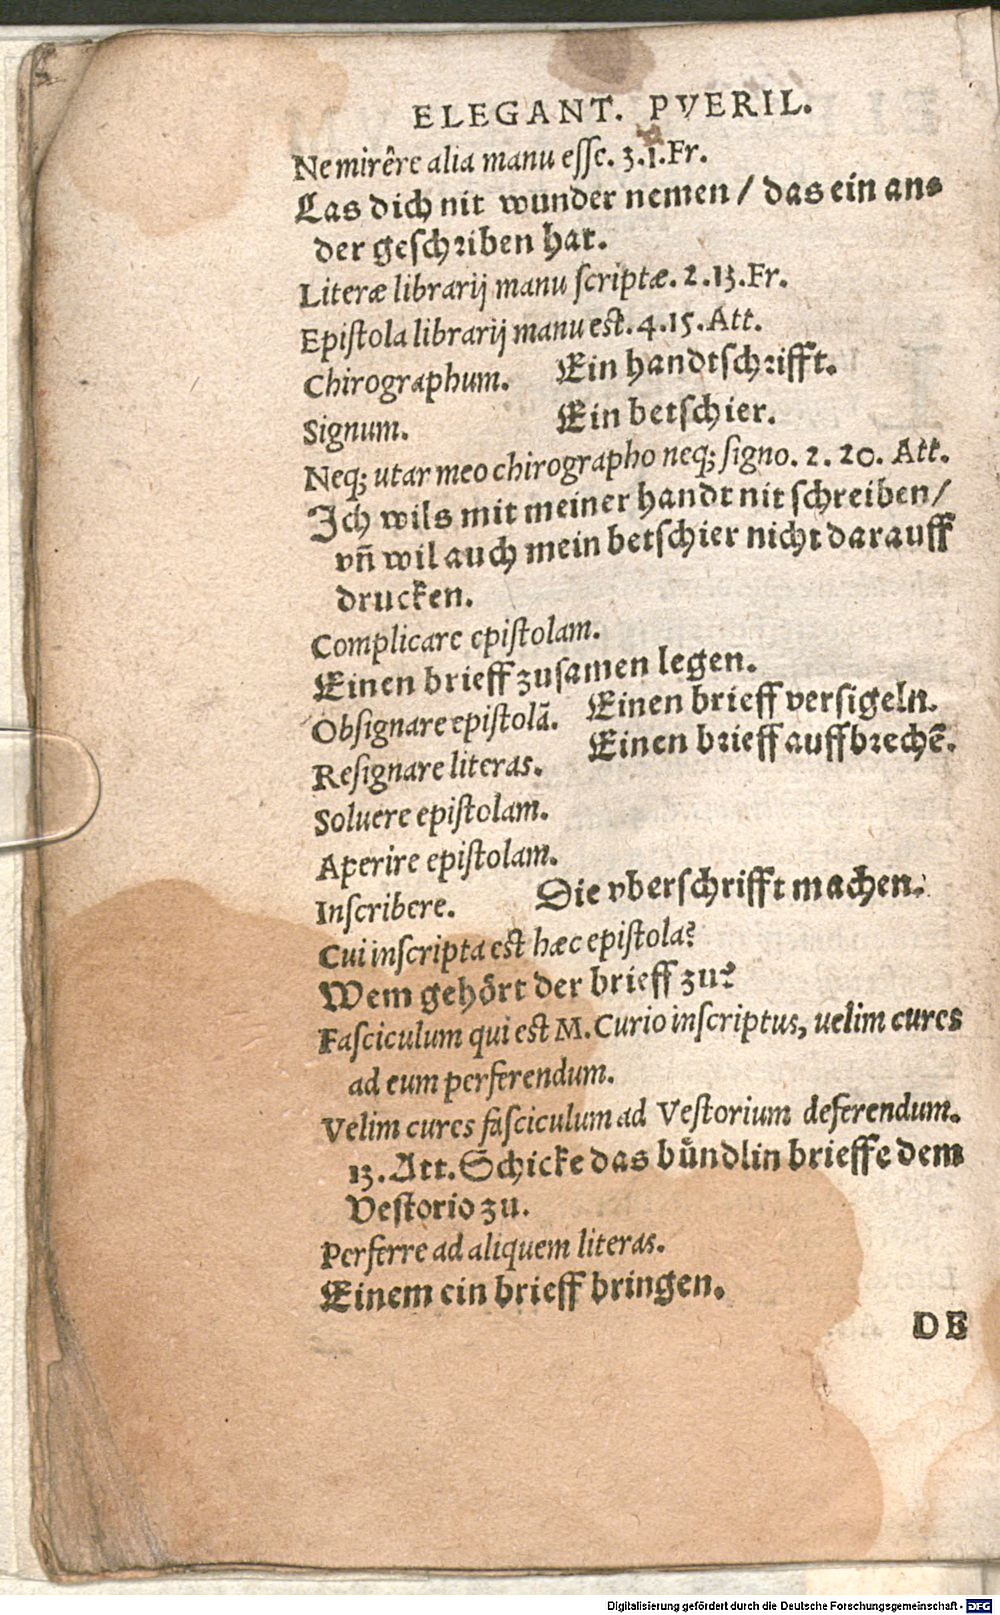 ELEGANT. PVERIL.
Ne mirêre alia manu esse. 3.1.Fr.
Las dich nit wunder nemen / das ein an⸗
der geschriben hat.
Literæ librarij manu scriptæ. 2.13.Fr.
Epistola librarij manu est. 4.15. Att.
Chirographum. Ein handtschrifft.
Signum. Ein betschier.
Neq; utar meo chirographo neq; signo. 2. 20. Att.
Ich wils mit meiner handt nit schreiben/
vñ wil auch mein betschier nicht darauff
drucken.
Complicare epistolam.
Einen brieff zusamen legen.
Obsignare epistolā. Einen brieff versigeln.
Resignare literas. Einen brieff auffbrechē.
Soluere epistolam.
Aperire epistolam.
Inscribere. Die vberschrifft machen.
Cui inscripta est hæc epistola?
Wem gehört der brieff zu?
Fasciculum qui est M. Curio inscriptus, uelim cures
ad eum perferendum.
Velim cures fasciculum ad Vestorium deferendum.
13. Att. Schicke das bündlin brieffe dem
Vestorio zu.
Perferre ad aliquem literas.
Einem ein brieff bringen.
DE
Digitalisierung gefördert durch die Deutsche Forschungsgemeinschaft - DFG